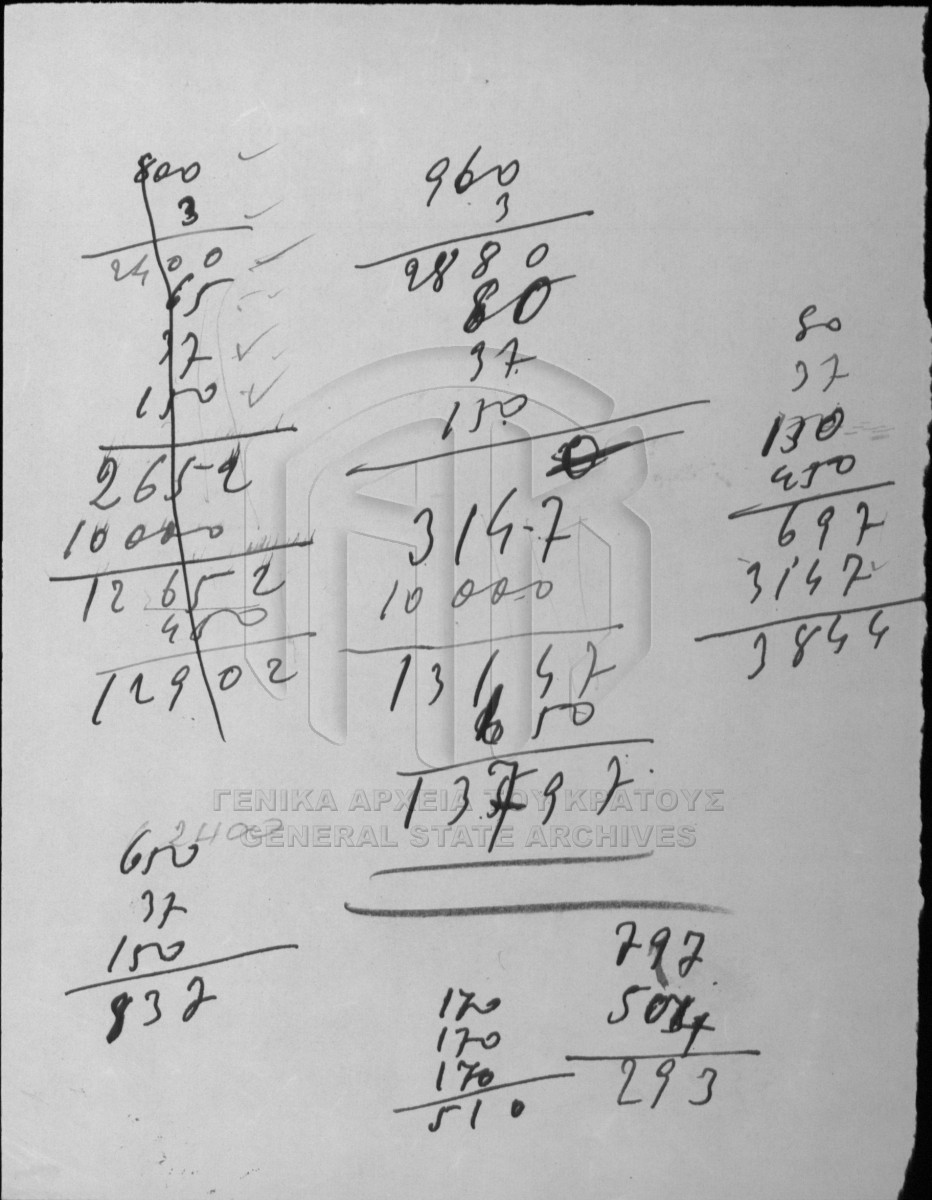 800
3
2400
65
37
150
2652
10000
12652
450
12902
960
3
2880
80
37
150
3147
10000
13147
650
13797
80
37
130
450
697
3147
3844
ΓΕΝΙΚΑ ΑΡΧΕΙΑ ΤΟΥ ΚΡΑΤΟΥΣ
GENERAL STATE ARCHIVES
2400
650
37
150
837
170
170
170
510
797
504
293